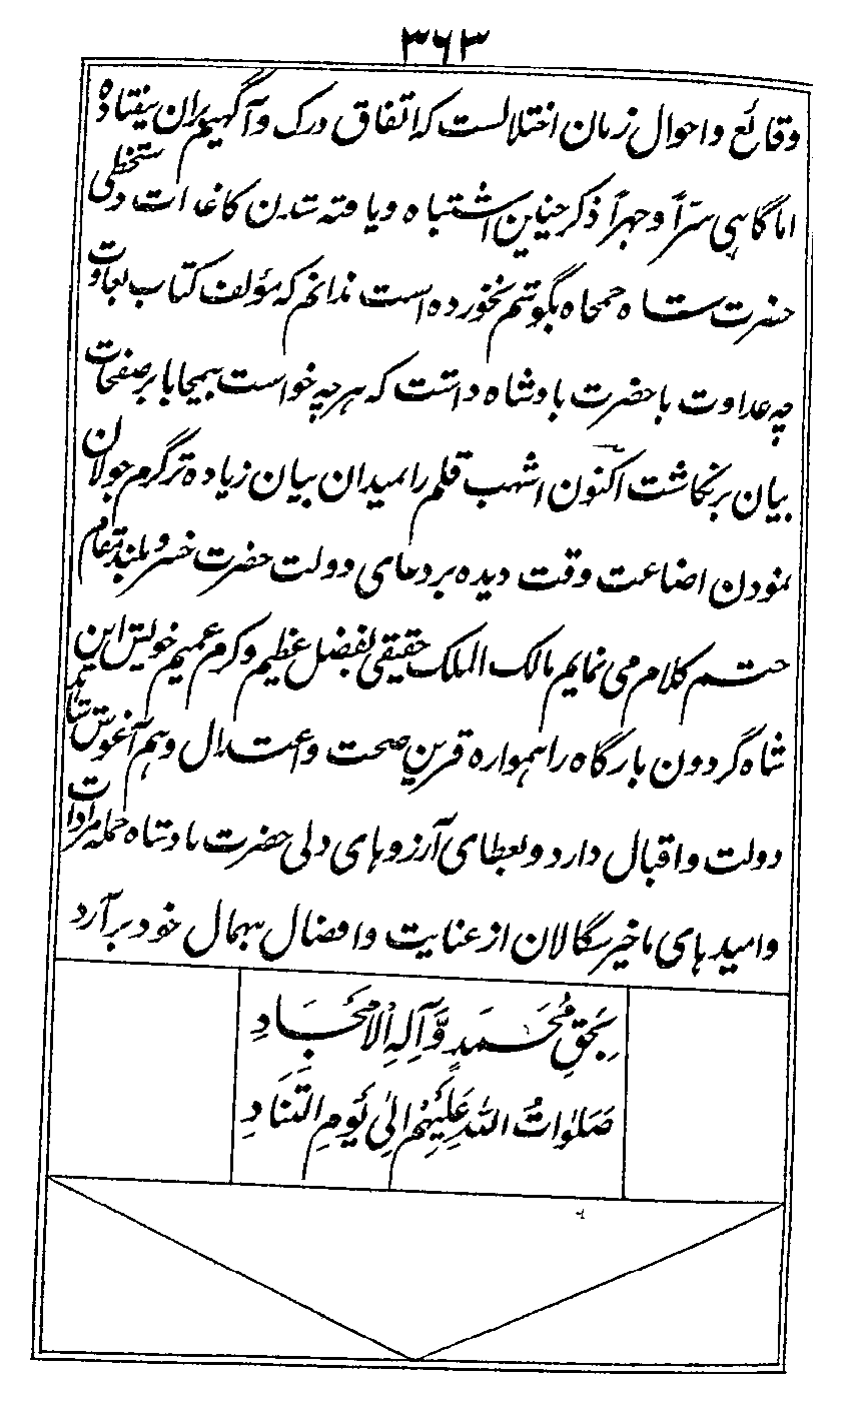 ۳۶۳
وقائع و احوال زمان اختلالست که اتفاق درک و آگهیم بران نیفتاده
اما گاهی سرّاً و جهراً ذکر چنین اشتباه و یافته شدن کاغذات دستخطی
حضرت شاه جمجاه بگوشم نخورده است ندانم که مؤلف کتاب بغاوت
چه عداوت با حضرت بادشاه داشت که هر چه خواست بیمحابا بر صفحات
بیان بر نگاشت اکنون اشهب قلم را بمیدان بیان زیاده تر گرم جولان
نمودن اضاعت وقت دیده بر دعای دولت حضرت خسرو بلند مقام
ختم کلام می نمایم مالک الملک حقیقی بفضل عظیم و کرم عمیم خویش این
شاه گردون بارگاه را همواره قرین صحت و اعتدال و هم آغوش شاهد
دولت و اقبال دارد و بعطای آرزوهای دلی حضرت بادشاه جمله مرادات
و امیدهای ما خیر سگالان از عنایت و افضال بیهمال خود برآرد
بِحَقِ مُحَمَدٍ وَّآلِهِ الْاَمْجَادِ
صَلَوٰاتُ اللهِ عَلَیْهِمْ اِلیٰ یَومِ التَّنَادِ